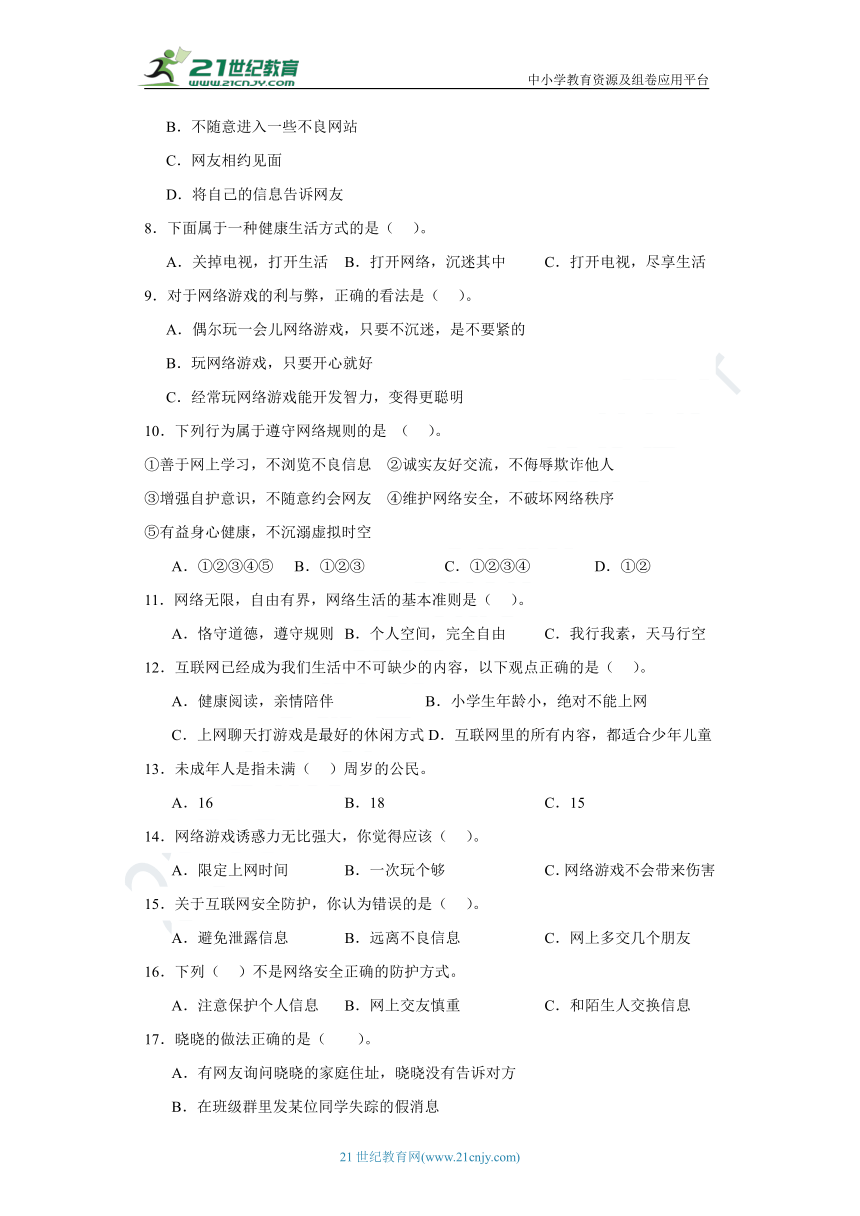 21世纪教育
WWW.21CNJY.COM
中小学教育资源及组卷应用平台
B．不随意进入一些不良网站
C．网友相约见面
D．将自己的信息告诉网友
8．下面属于一种健康生活方式的是（ ）。
A．关掉电视，打开生活 B．打开网络，沉迷其中 C．打开电视，尽享生活
9．对于网络游戏的利与弊，正确的看法是（ ）。
A．偶尔玩一会儿网络游戏，只要不沉迷，是不要紧的
B．玩网络游戏，只要开心就好
C．经常玩网络游戏能开发智力，变得更聪明
10．下列行为属于遵守网络规则的是 （ ）。
①善于网上学习，不浏览不良信息 ②诚实友好交流，不侮辱欺诈他人
③增强自护意识，不随意约会网友 ④维护网络安全，不破坏网络秩序
⑤有益身心健康，不沉溺虚拟时空
A．①②③④⑤ B．①②③ C．①②③④ D．①②
11．网络无限，自由有界，网络生活的基本准则是（ ）。
A．恪守道德，遵守规则 B．个人空间，完全自由 C．我行我素，天马行空
12．互联网已经成为我们生活中不可缺少的内容，以下观点正确的是（ ）。
A．健康阅读，亲情陪伴 B．小学生年龄小，绝对不能上网
C．上网聊天打游戏是最好的休闲方式 D．互联网里的所有内容，都适合少年儿童
13．未成年人是指未满（ ）周岁的公民。
A．16 B．18 C．15
14．网络游戏诱惑力无比强大，你觉得应该（ ）。
A．限定上网时间 B．一次玩个够 C．网络游戏不会带来伤害
15．关于互联网安全防护，你认为错误的是（ ）。
A．避免泄露信息 B．远离不良信息 C．网上多交几个朋友
16．下列（ ）不是网络安全正确的防护方式。
A．注意保护个人信息 B．网上交友慎重 C．和陌生人交换信息
17．晓晓的做法正确的是（ ）。
A．有网友询问晓晓的家庭住址，晓晓没有告诉对方
B．在班级群里发某位同学失踪的假消息
21世纪教育网(www.21cnjy.com)